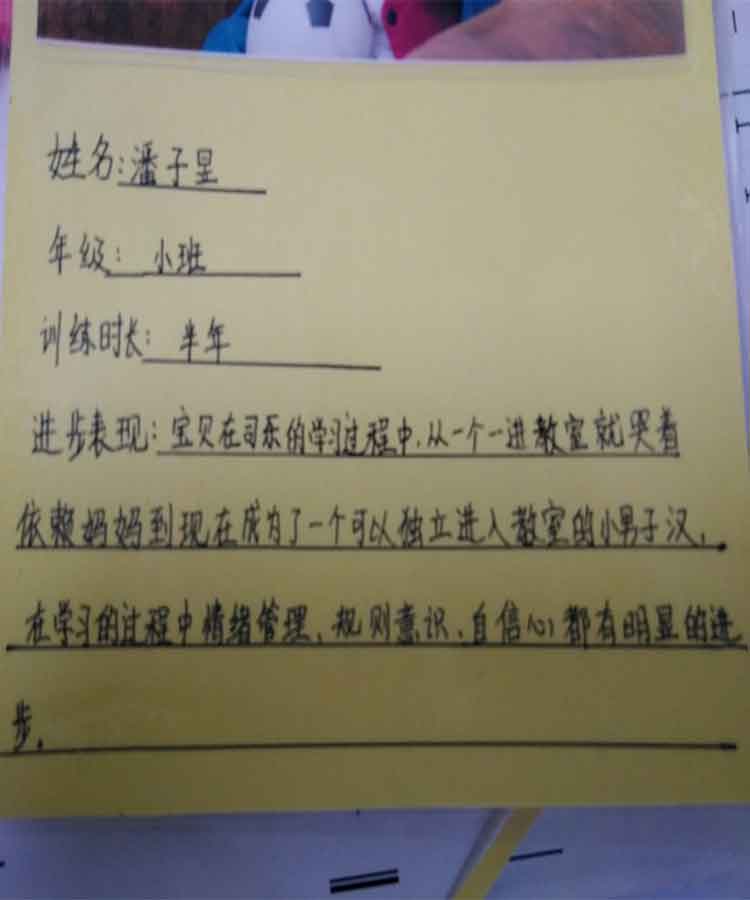 姓名:潘子星
年级: 小班
训练时长: 半年
进步表现:宝贝在司乐的学习过程中,从一个一进教室就哭着
依赖妈妈到现在成为了一个可以独立进入教室的小男子汉,
在学习的过程中情绪管理、规则意识、自信心都有明显的进
步。